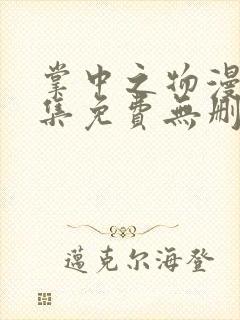 掌中之物漫
集免費無刪
邁克尔海登